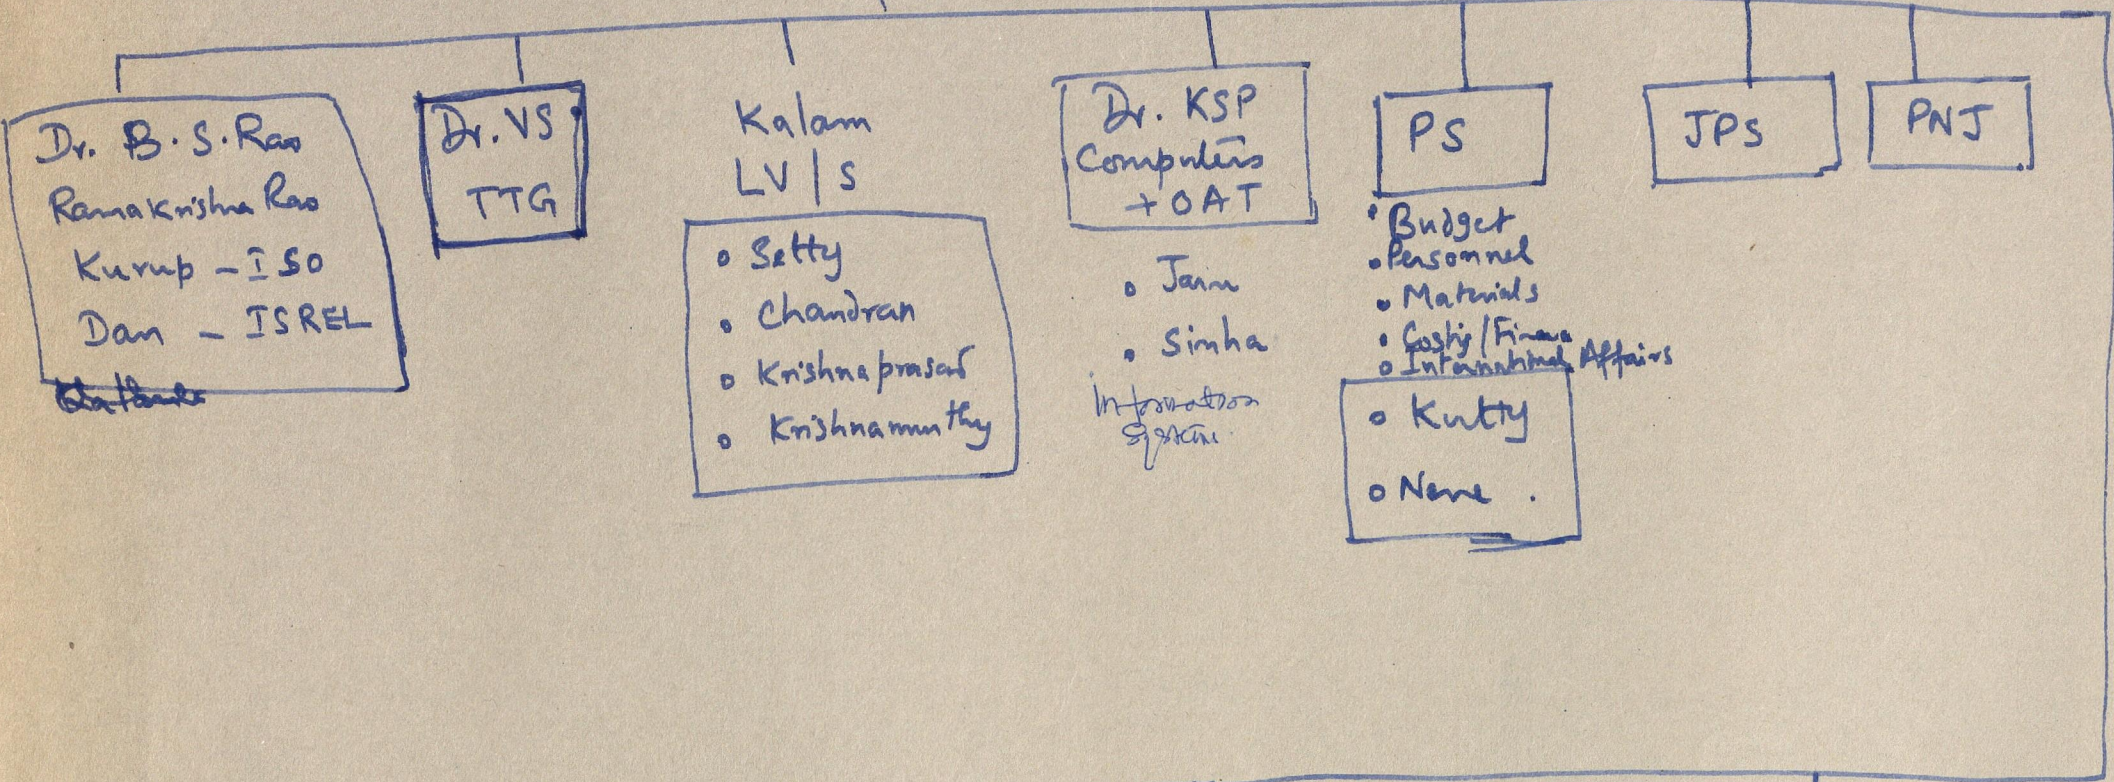 Dr. B. S. Rao
Ramakrishna Rao
Kurup - ISO
Dan - ISREL
Dr. VS
TTG
Kalam
LV | S
Setty
Chandran
Krishnaprasad
Krishnamurthy
Dr. KSP
Computers
+ OAT
Jain
Sinha
Information
System
PS
Budget
Personnel
Materials
Costig / Finance
International Affairs
Kutty
Nene .
JPS
PNJ